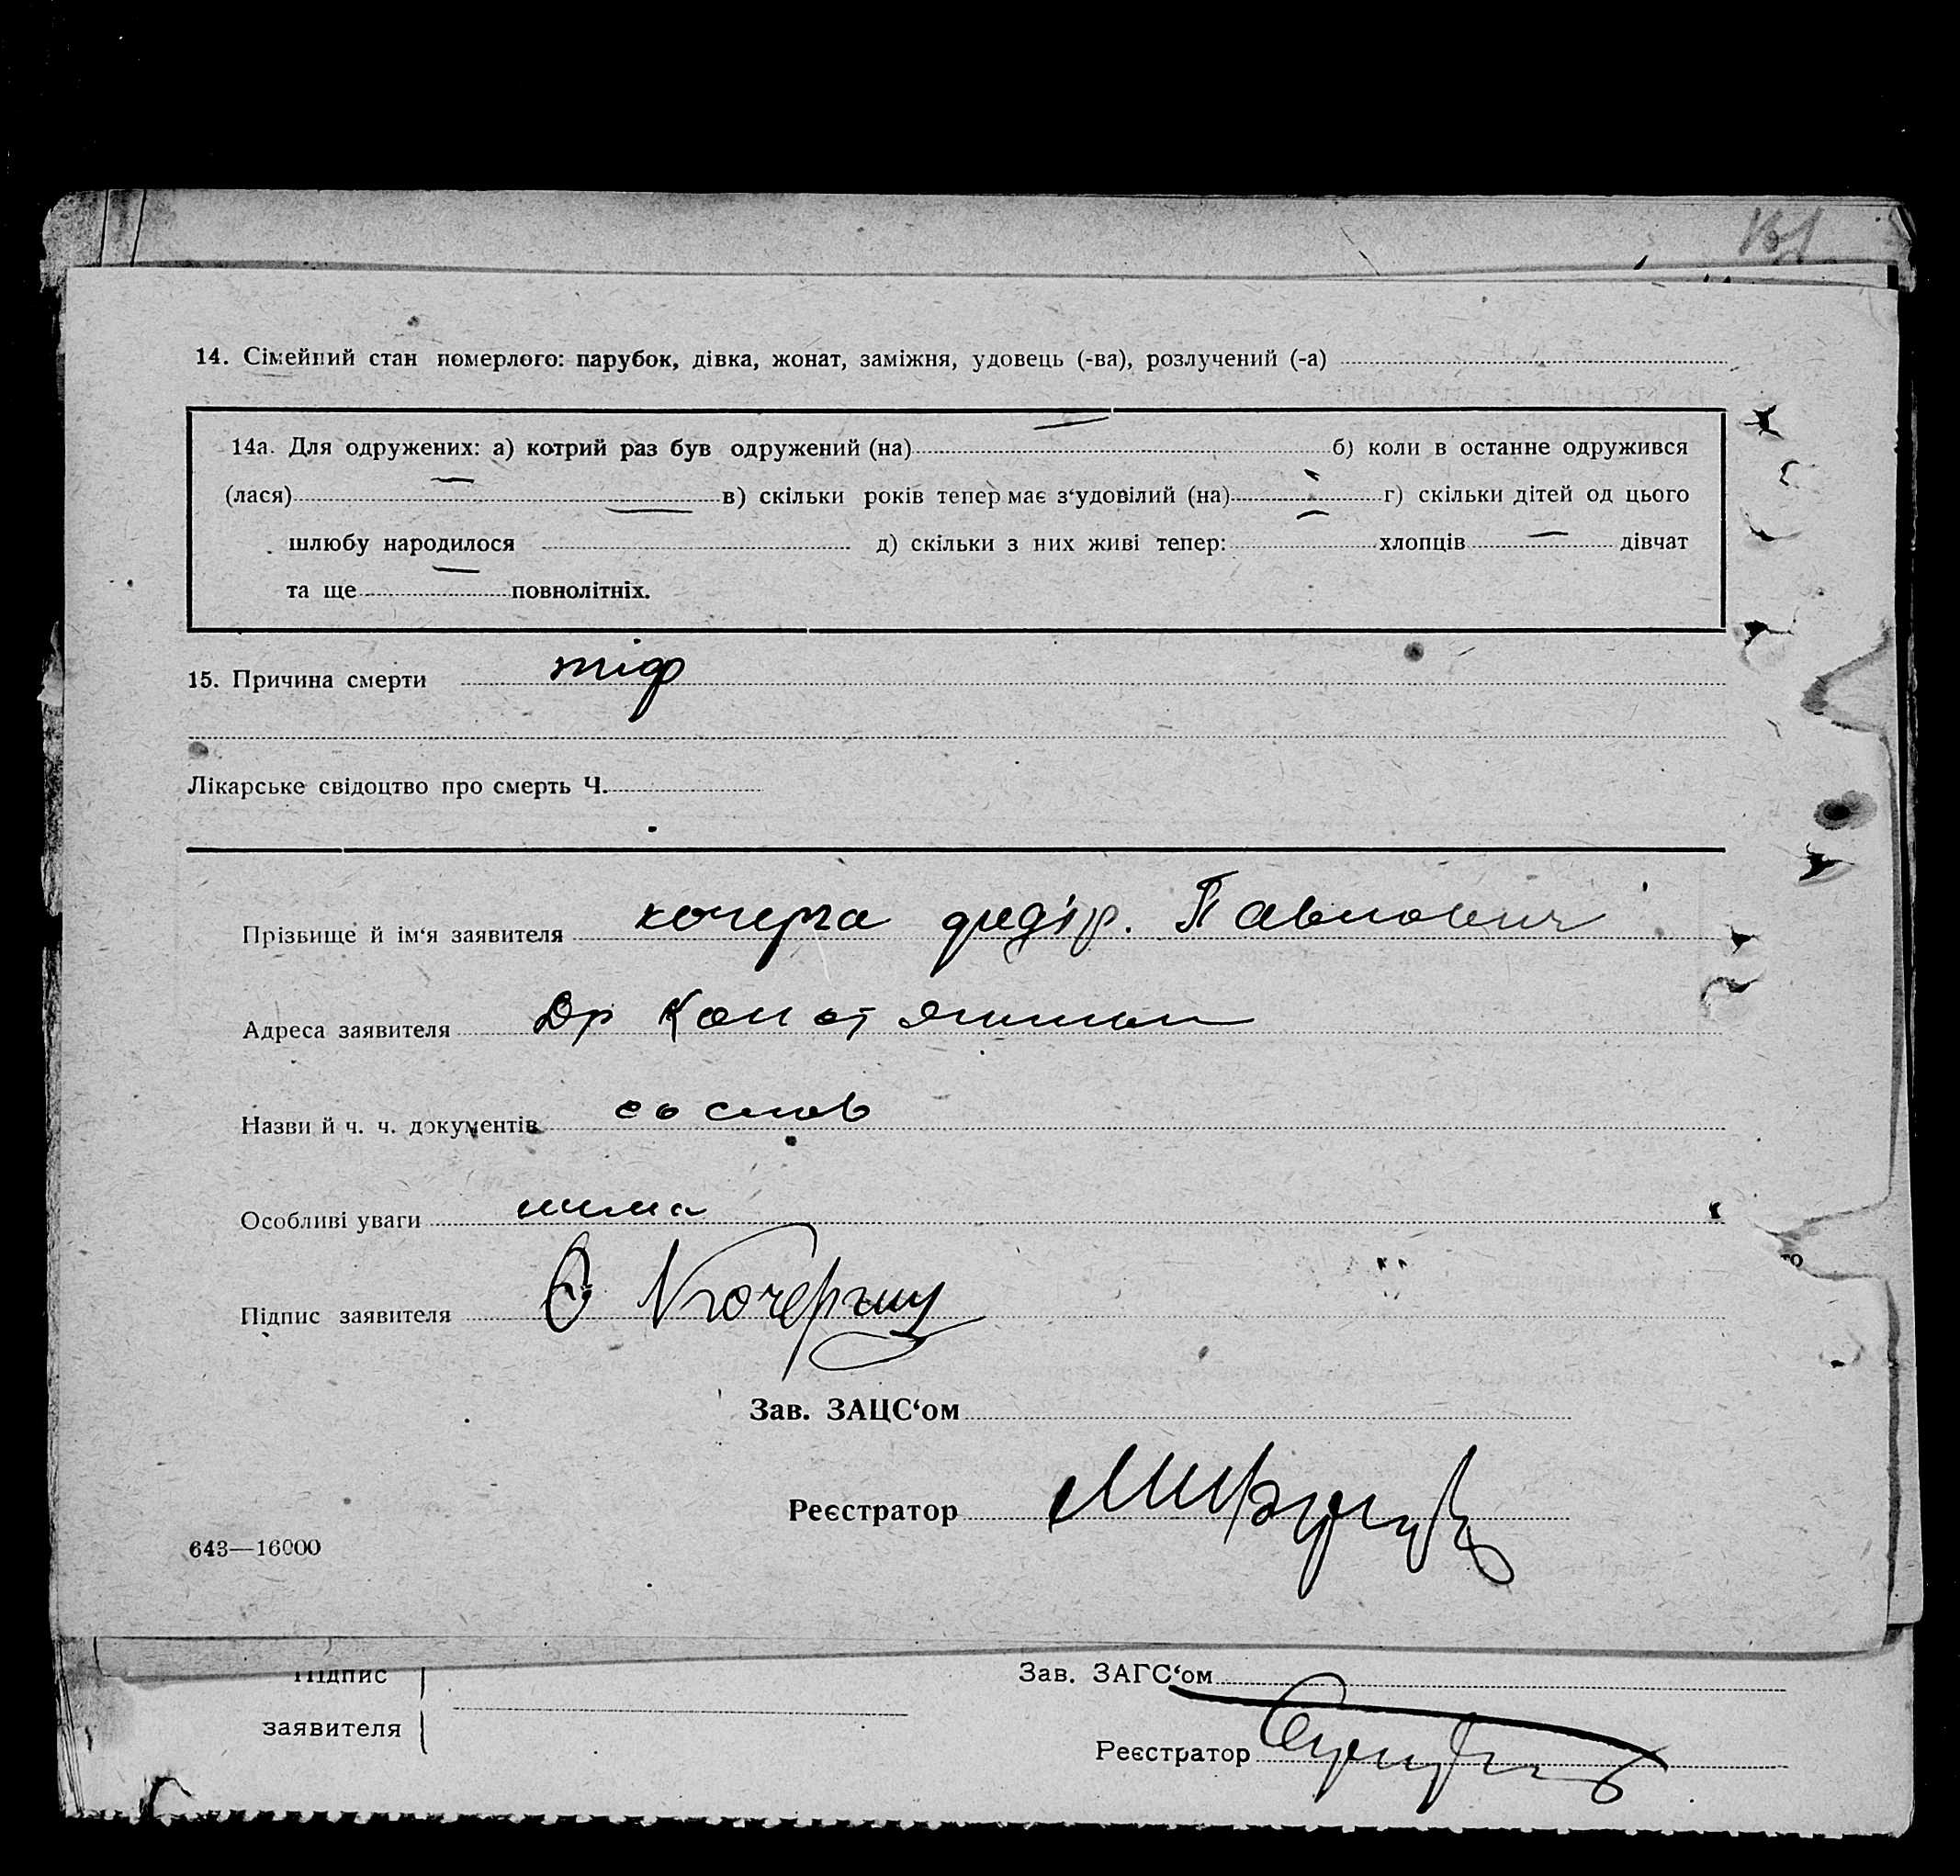 14. Сімейний стан померлого: парубок, дівка, жонат, заміжня, удовець (-ва), розлучений (-а)
14а. Для одружених: а) котрий раз був одружений (на) — б) коли в останне одружився
(лася) — в) скільки років тепер має з‘удовілий (на) — г) скільки дітей од цього
шлюбу народилося — д) скільки з них живі тепер: — хлопців — дівчат
та ще — повнолітніх.
15. Причина смерти тіф
Лікарське свідоцтво про смерть Ч.
Прізвище й ім‘я заявителя кочерга федір. Павлович
Адреса заявителя
Назви й ч. ч. документів со слов
Особливі уваги нима
Підпис заявителя
Зав. ЗАЦС‘ом
Реєстратор
643—16000
Підпис Зав. ЗАГС‘ом
заявителя Реєстратор